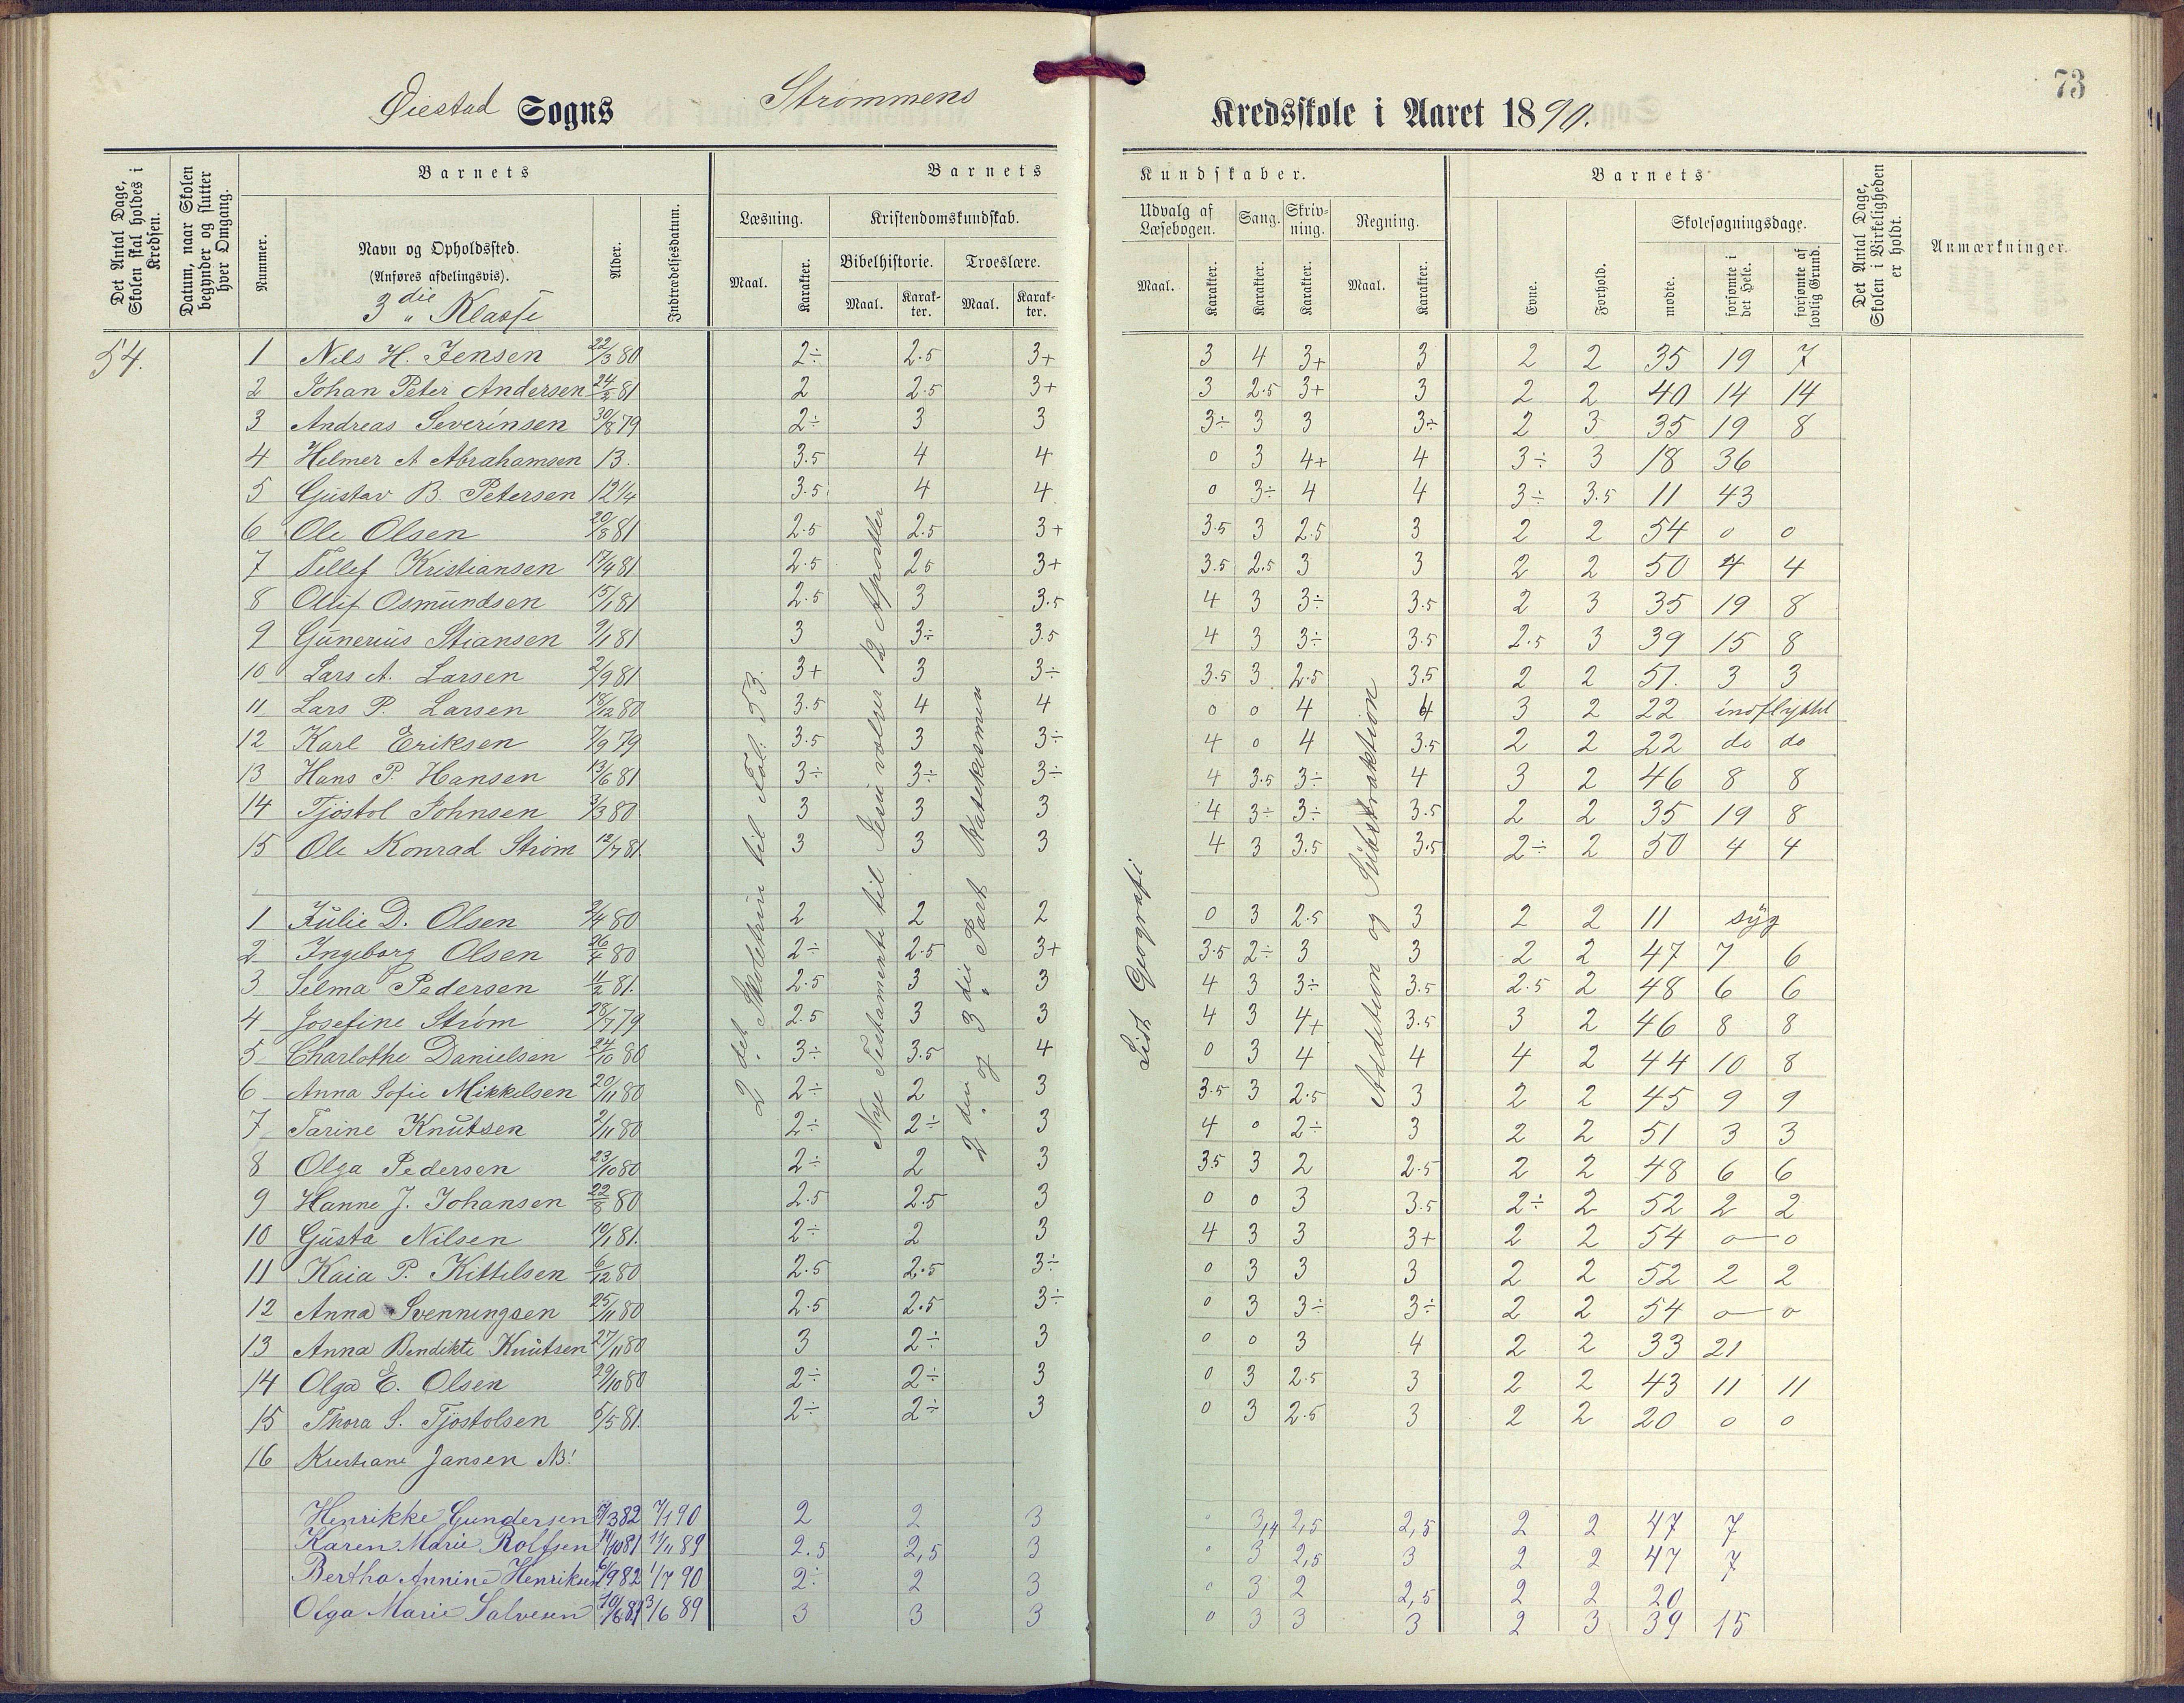 73
Øiestad Sogns Strømmens Kredsskole i Aaret 1890.
Det Antal Dage, Skolen skal holdes i Kredsen.
Datum, naar Skolen begynder og slutter hver Omgang.
Barnets
Nummer.
Navn og Opholdssted.
(Anføres afdelingsvis).
3die Klasse
Alder.
Indtrædelsesdatum.
Barnets Kundskaber.
Læsning.
Maal. Karakter.
Kristendomskundskab.
Bibelhistorie. Troeslære.
Maal. Karakter. Maal. Karakter.
Udvalg af Læsebogen. Sang. Skrivning. Regning.
Maal. Karakter. Karakter. Karakter. Maal. Karakter.
Barnets
Evne. Forhold.
Skolesøgningsdage.
mødte. forsømte i det Hele. forsømte af lovlig Grund.
Det Antal Dage, Skolen i Virkeligheden er holdt.
Anmærkninger.
54.
2det Skoletrin til Fol: 53.
Nye Testamente til Jesu vælger 12 Apostler
2den og 3die Part Katekismen
Lidt Geografi
Addition og Subtraktion
1 Nils H. Jensen 22/3 80 2÷ 2.5 3+ 3 4 3+ 3 2 2 35 19 7
2 Johan Peter Andersen 24/2 81 2 2.5 3+ 3 2.5 3+ 3 2 2 40 14 14
3 Andreas Severinsen 30/8 79 2÷ 3 3 3÷ 3 3 3÷ 2 3 35 19 8
4 Helmer A Abrahamsen 13. 3.5 4 4 0 3 4+ 4 3÷ 3 18 36
5 Gustav B. Petersen 12 1/4 3.5 4 4 0 3÷ 4 4 3÷ 3.5 11 43
6 Ole Olsen 20/8 81 2.5 2.5 3+ 3.5 3 2.5 3 2 2 54 0 0
7 Tellef Kristiansen 17/4 81. 2.5 25 3+ 3.5 2.5 3 3 2 2 50 4 4
8 Oluf Osmundsen 15/1 81 2.5 3 3.5 4 3 3÷ 3.5 2 3 35 19 8
9 Gunerius Stiansen 9/1 81 3 3÷ 3.5 4 3 3÷ 3.5 2.5 3 39 15 8
10 Lars A. Larsen 2/9 81 3+ 3 3÷ 3.5 3 2.5 3.5 2 2 51. 3 3
11 Lars P. Larsen 18/12 80 3.5 4 4 0 0 4 4 3 2 22 indflyttet
12 Karl Eriksen 7/9 79 3.5 3 3÷ 4 0 4 3.5 2 2 22 do do
13 Hans P. Hansen 13/6 81 3÷ 3÷ 3÷ 4 3.5 3÷ 4 3 2 46 8 8
14 Tjøstol Johnsen 3/3 80 3 3 3 4 3÷ 3÷ 3.5 2 2 35 19 8
15 Ole Konrad Strøm 12/7 81. 3 3 3 4 3 3.5 3.5 2÷ 2 50 4 4
1 Julie D. Olsen 2/4 80 2 2 2 0 3 2.5 3 2 2 11 syg
2 Ingeborg Olsen 26/4 80 2÷ 2.5 3+ 3.5 2÷ 3 3 2 2 47 7 6
3 Selma Pedersen 11/2 81. 2.5 3 3 4 3 3÷ 3.5 2.5 2 48 6 6
4 Josefine Strøm 28/7 79 2.5 3 3 4 3 4+ 3.5 3 2 46 8 8
5 Charlothe Danielsen 24/10 80 3÷ 3.5 4 0 3 4 4 4 2 44 10 8
6 Anna Sofie Mikkelsen 20/11 80 2÷ 2 3 3.5 3 2.5 3 2 2 45 9 9
7 Tarine Knutsen 2/11 80 2÷ 2÷ 3 4 0 2÷ 3 2 2 51 3 3
8 Olga Pedersen 23/10 80 2÷ 2 3 3.5 3 2 2.5 2 2 48 6 6
9 Hanne J. Johansen 22/8 80 2.5 2.5 3 0 0 3 3.5 2÷ 2 52 2 2
10 Gusta Nilsen 10/1 81. 2÷ 2 3 4 3 3 3+ 2 2 54 0 0
11 Kaia P. Kittelsen 6/12 80 2.5 2.5 3÷ 0 3 3 3 2 2 52 2 2
12 Anna Svenningsen 25/11 80 2.5 2.5 3÷ 0 3 3÷ 3÷ 2 2 54 0 0
13 Anna Bendikte Knutsen 27/11 80 3 2÷ 3 0 0 3 4 2 2 33 21
14 Olga E. Olsen 29/10 80 2÷ 2÷ 3 0 3 2.5 3 2 2 43 11 11
15 Thora S. Tjøstolsen 5/5 81. 2÷ 2÷ 3 0 3 2.5 3 2 2 20 0 0
16 Kristiane Jansen NB!
Henrikke Gundersen 5/3 82 7/1 90 2 2 3 0 3,4 2,5 2,5 2 2 47 7
Karen Marie Rolfsen 14/10 81 11/11 89 2.5 2,5 3 0 3 2,5 3 2 2 47 7
Bertha Annine Henriksen 6/9 82 1/7 90 2÷ 2 3 0 3 2 2,5 2 2 20
Olga Marie Salvesen 10/6 81 3/6 89 3 3 3 0 3 3 3 2 3 39 15